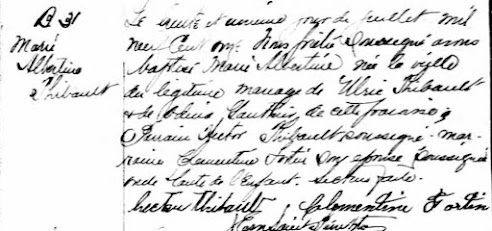 B 31
Marie
Albertine
Thibault
Le trente et unième jour de juillet mil
neuf cent onze Nous prêtre soussigné avons
baptisé Marie Albertine née la veille
du légitime mariage de Ulric Thibault
& de Gauthier de cette paroisse
Parrain Hector Thibault soussigné. mar-
raine Clementine Fortin son épouse soussignée
oncle & tante de l'Enfant. Lecture faite.
Hector Thibault Clementine Fortin